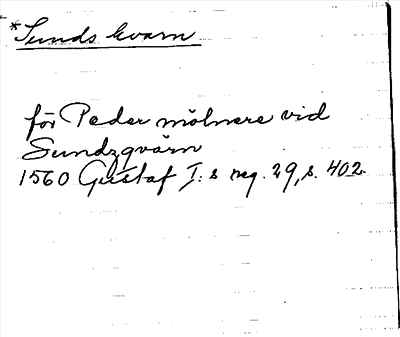 *Sunds kvarn
för Peder mölnere vid
Sundzqvärn
1560 Gustaf I:s reg. 29, s. 402.